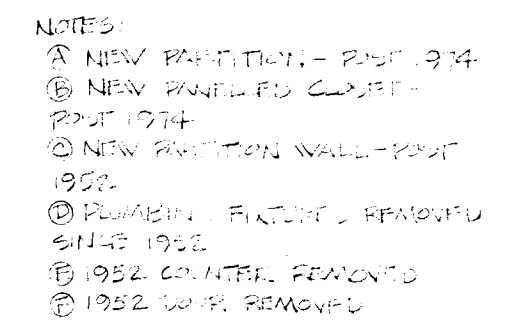 NOTES:
Ⓐ NEW PARTITION - POST 1974
Ⓑ NEW PANELLED CLOSET -
POST 1974
Ⓒ NEW PARTITION WALL - POST
1952
Ⓓ PLUMBING FIXTURES REMOVED
SINCE 1952
Ⓔ 1952 COUNTER REMOVED
Ⓕ 1952 DOOR REMOVED